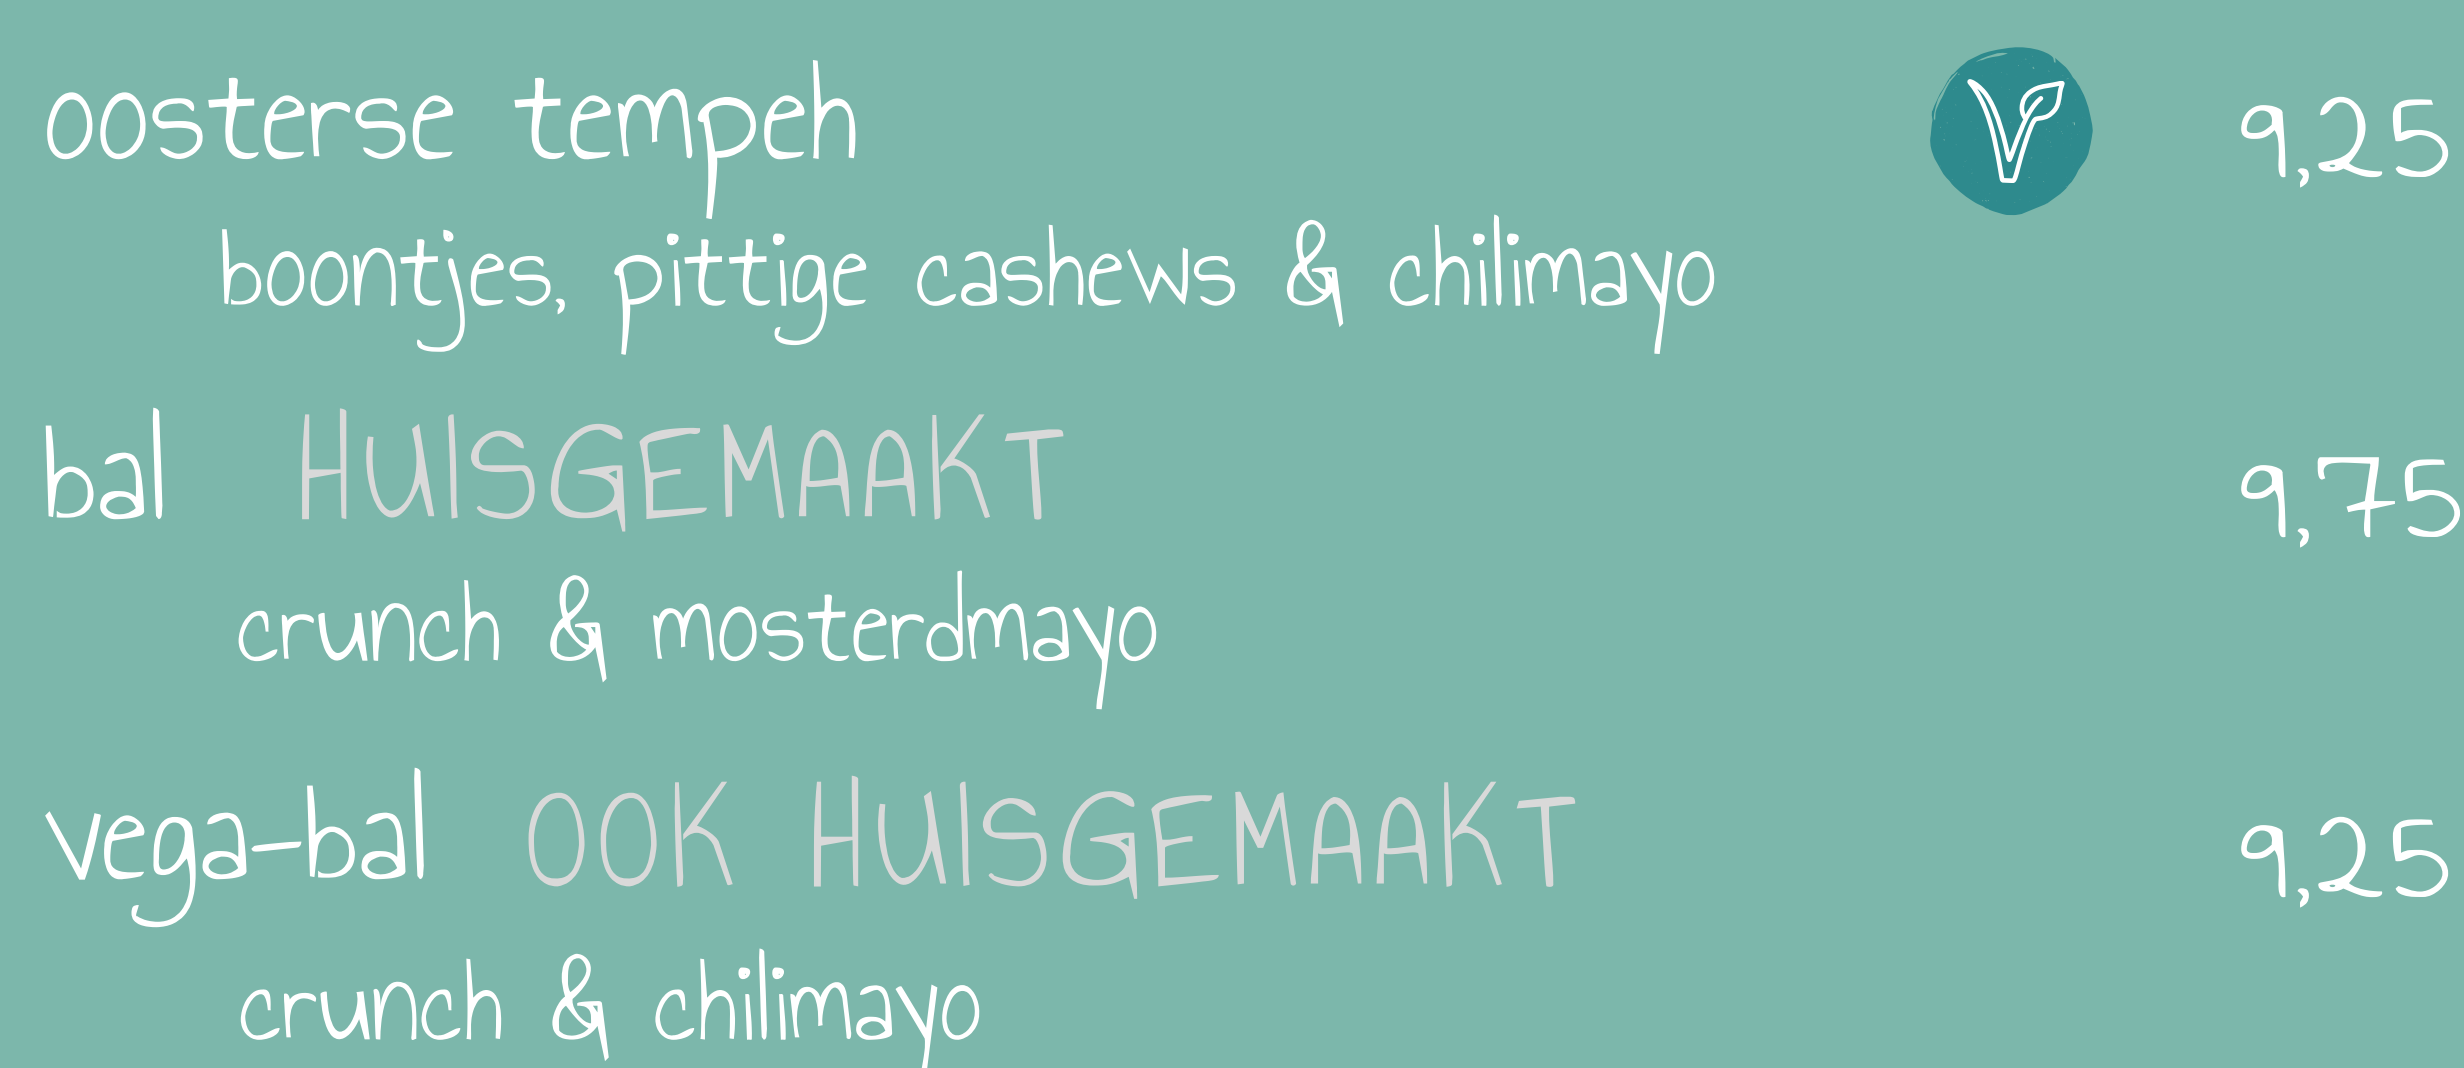 oosterse tempeh V 9,25
boontjes, pittige cashews & chilimayo
bal HUISGEMAAKT 9,75
crunch & mosterdmayo
vega-bal OOK HUISGEMAAKT 9,25
crunch & chilimayo